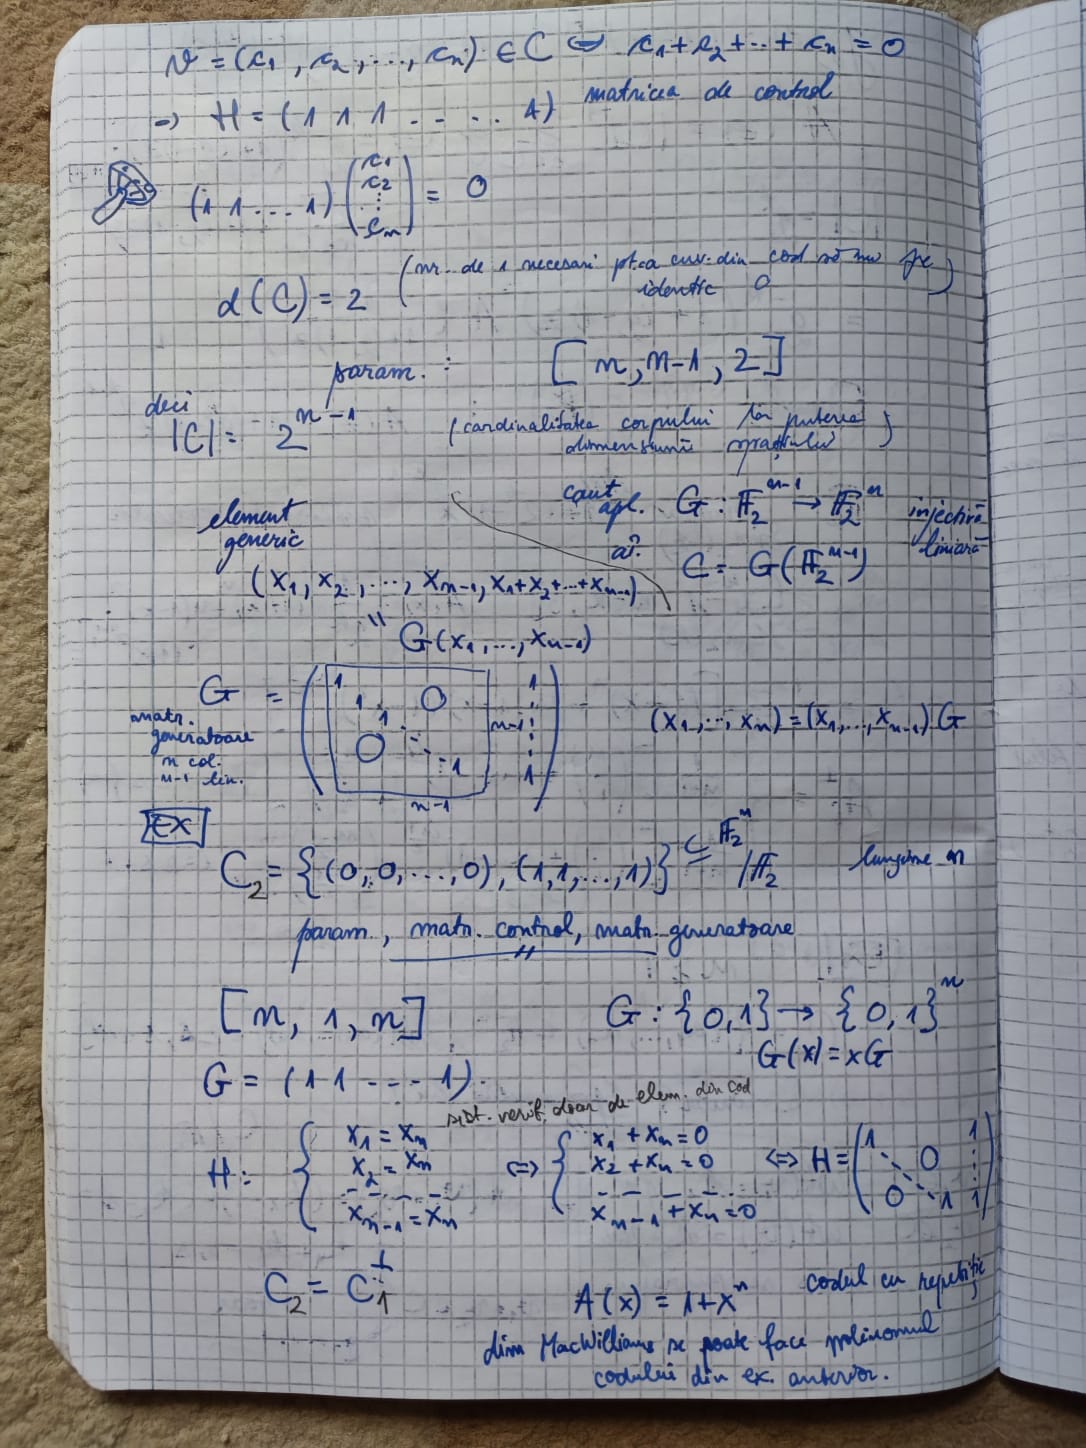 v = (c1, c2, ..., cn) ∈ C ⇔ c1 + c2 + ... + cn = 0
⇒ H = (1 1 1 ... 1) matricea de control
(1 1 ... 1) (c1 c2 ⋮ cn) = 0
d(C) = 2 (nr. de 1 necesari pt. ca cuv. din cod să nu fie
identic 0)
param. : [n, n-1, 2]
deci
|C| = 2^(n-1) (cardinalitatea corpului la puterea
dimensiunii spațiului)
caut apl. G : F2^(n-1) → F2^n injectivă
liniară
aî. C = G(F2^(n-1))
element
generic
(x1, x2, ..., xn-1, x1+x2+...+xn-1)
"
G(x1, ..., xn-1)
G = (1 1 1 O O 1 n-1 1 ⋮ 1)
n-1
matr.
generatoare
n col.
n-1 lin.
(x1, ..., xn) = (x1, ..., xn-1) G
EX
C2 = {(0, 0, ..., 0), (1, 1, ..., 1)} ⊆ F2^n /F2 lungime n
param., matr. control, matr. generatoare
[n, 1, n] G : {0, 1} → {0, 1}^n
G(x) = xG
G = (1 1 ---- 1).
sist. verif. doar de elem. din cod
H: { x1 = xn ⇔ { x1 + xn = 0 ⇔ H = (1 O 1
x2 = xn x2 + xn = 0 ⋮
xn-1 = xn xn-1 + xn = 0 O 1 1)
C2 = C1^⊥ A(x) = 1+x^n codul cu repetiție
din MacWilliams se poate face polinomul
codului din ex. anterior.